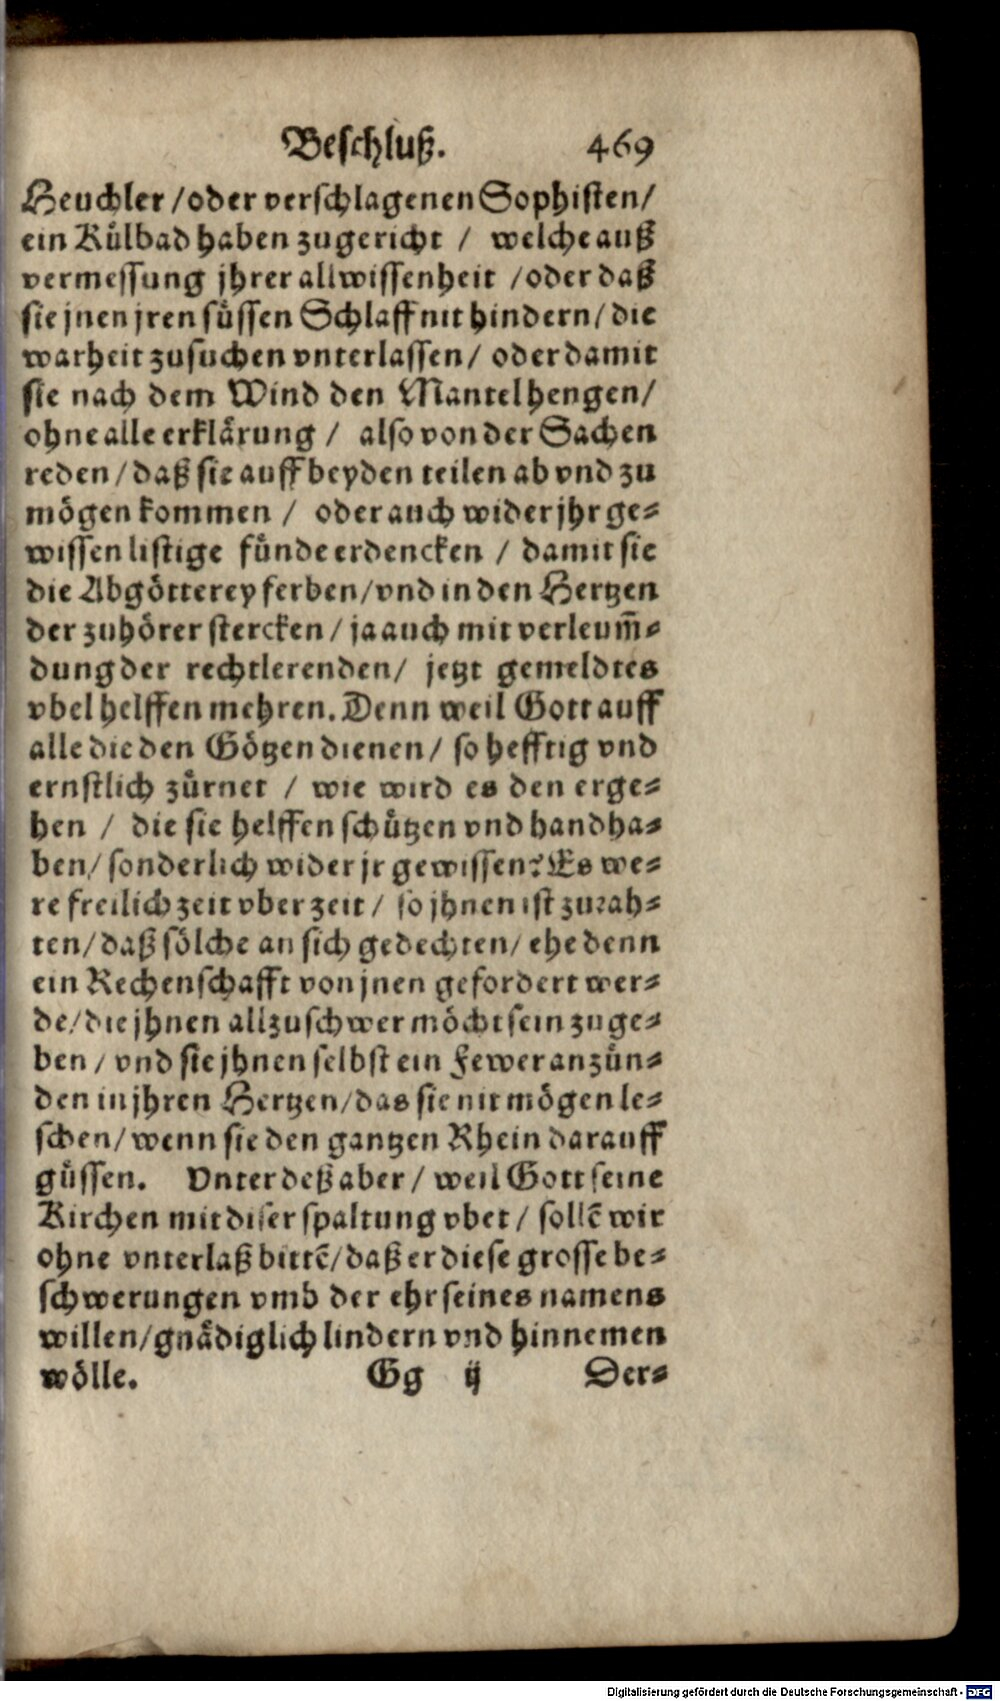 Beschluß. 469
Heuchler / oder verschlagenen Sophisten /
ein Külbad haben zugericht / welche auß
vermessung jhrer allwissenheit / oder daß
sie jnen jren süssen Schlaff nit hindern / die
warheit zusuchen vnterlassen / oder damit
sie nach dem Wind den Mantel hengen /
ohne alle erklärung / also von der Sachen
reden / daß sie auff beyden teilen ab vnd zu
mögen kommen / oder auch wider jhr ge-
wissen listige fünde erdencken / damit sie
die Abgötterey ferben / vnd in den Hertzen
der zuhörer stercken / ja auch mit verleum̃-
dung der rechtlerenden / jetzt gemeldtes
vbel helffen mehren. Denn weil Gott auff
alle die den Götzen dienen / so hefftig vnd
ernstlich zürnet / wie wird es den erge-
hen / die sie helffen schützen vnd handha-
ben / sonderlich wider jr gewissen? Es we-
re freilich zeit vber zeit / so jhnen ist zurah-
ten / daß sölche an sich gedechten / ehe denn
ein Rechenschafft von jnen gefordert wer-
de / die jhnen allzuschwer möcht sein zuge-
ben / vnd sie jhnen selbst ein Fewer anzün-
den in jhren Hertzen / das sie nit mögen le-
schen / wenn sie den gantzen Rhein darauff
güssen. Vnter deß aber / weil Gott seine
Kirchen mit diser spaltung vbet / sollẽ wir
ohne vnterlaß bittẽ / daß er diese grosse be-
schwerungen vmb der ehr seines namens
willen / gnädiglich lindern vnd hinnemen
wölle. Gg ij Der-
Digitalisierung gefördert durch die Deutsche Forschungsgemeinschaft - DFG